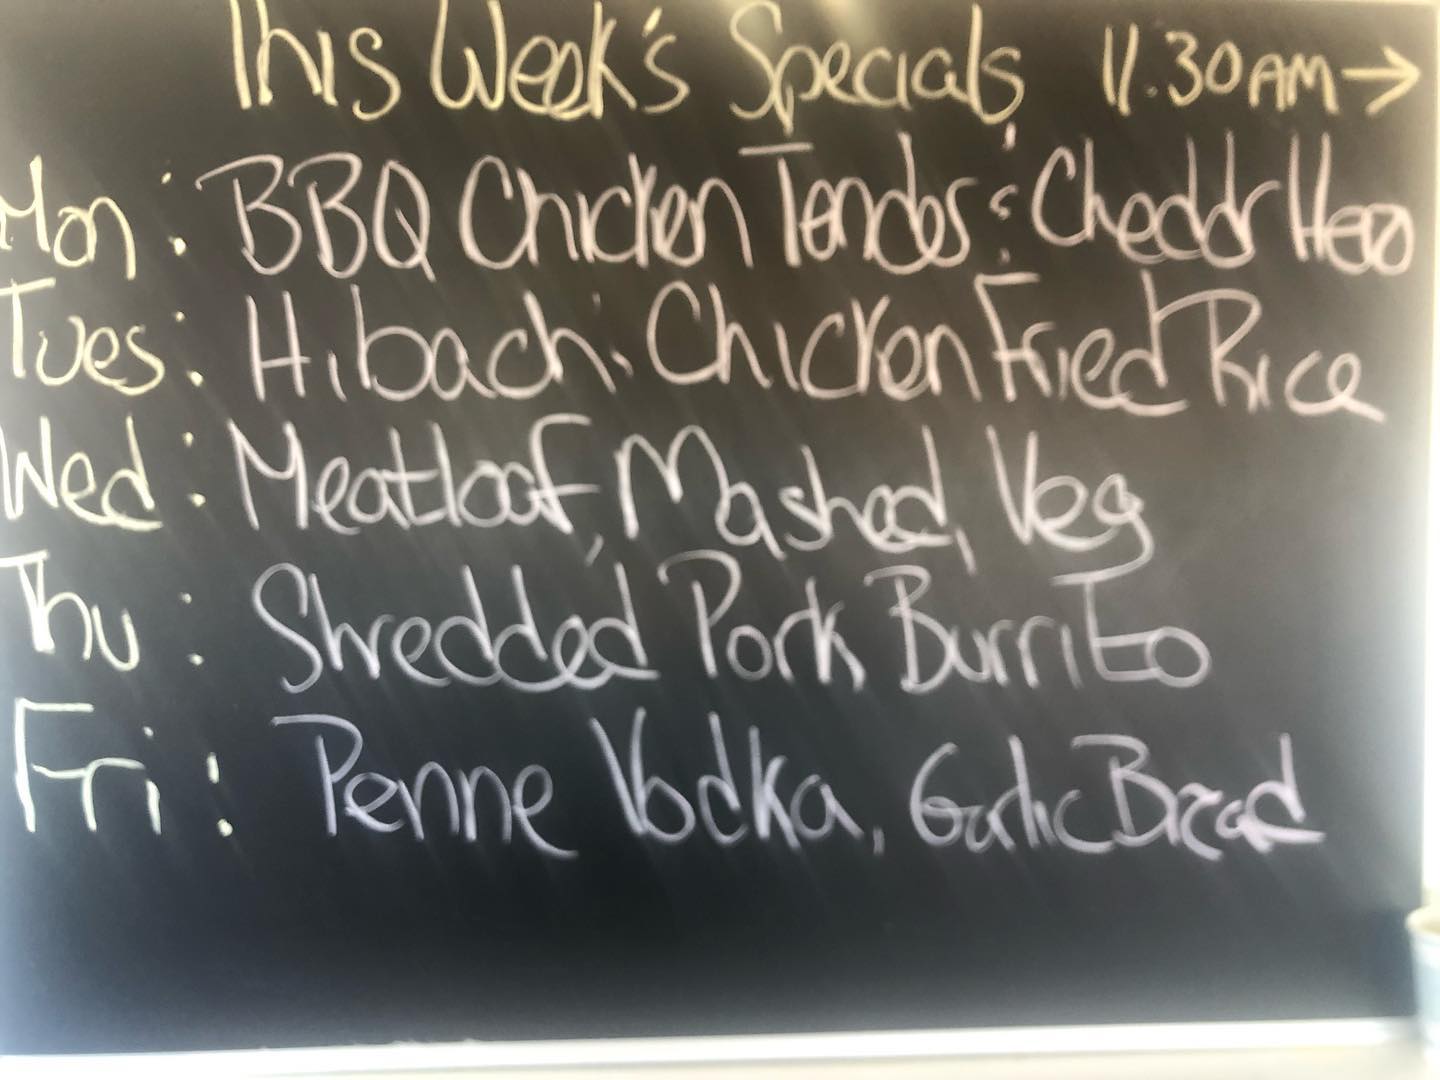 This Week's Specials 11.30AM →
Mon: BBQ Chicken Tenders & Cheddr Hero
Tues: Hibachi Chicken Fried Rice
Wed: Meatloaf, Mashed, Veg
Thu: Shredded Pork Burrito
Fri: Penne Vodka, Garlic Bread